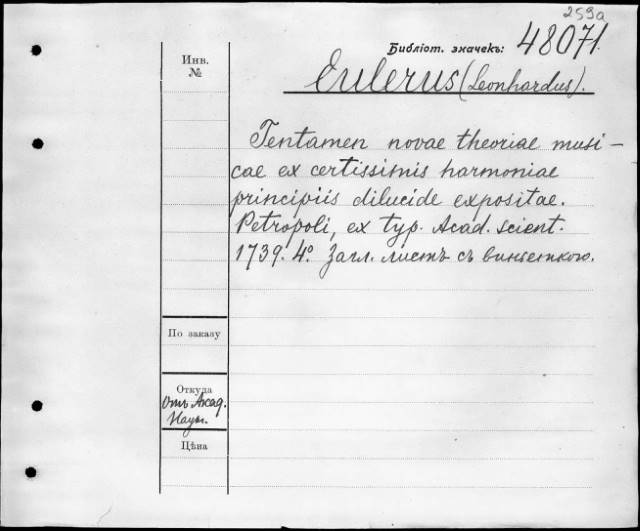 259а
Библіот. значекъ: 48071.
Инв.
№
Eulerus (Leonhardus).
Tentamen novae theoriae musi-
cae ex certissimis harmoniae
principiis dilucide expositae.
Petropoli, ex typ. Acad. scient.
1739. 4°. Загл. листъ съ виньеткою.
По заказу
Откуда
Отъ Акад.
Наук.
Цѣна